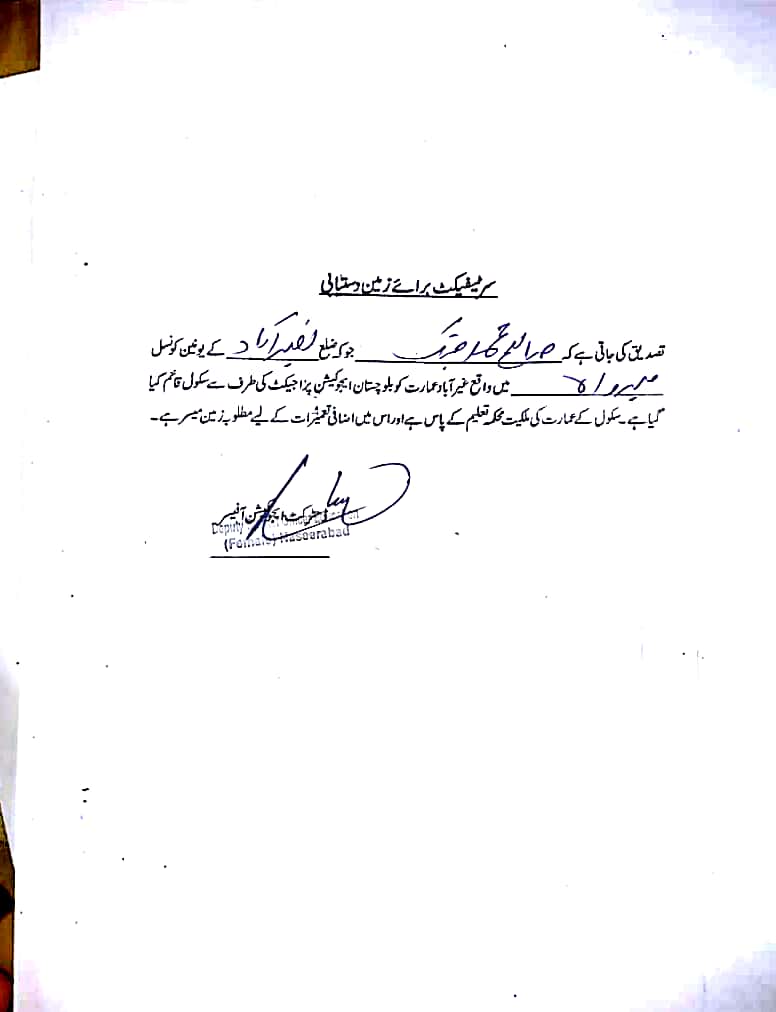 سرٹیفیکٹ برائے زمین دستیابی
تصدیق کی جاتی ہے کہ صالح محمد جتک جو کہ ضلع نصیر آباد کے یونین کونسل
میرواہ میں واقع غیر آباد عمارت کو بلوچستان ایجوکیشن پراجیکٹ کی طرف سے سکول قائم کیا
گیا ہے۔ سکول کے عمارت کی ملکیت محکمہ تعلیم کے پاس ہے اور اس میں اضافی تعمیرات کے لیے مطلوبہ زمین میسر ہے۔
ڈسٹرکٹ ایجوکیشن آفیسر
Deputy
(Female) Naseerabad